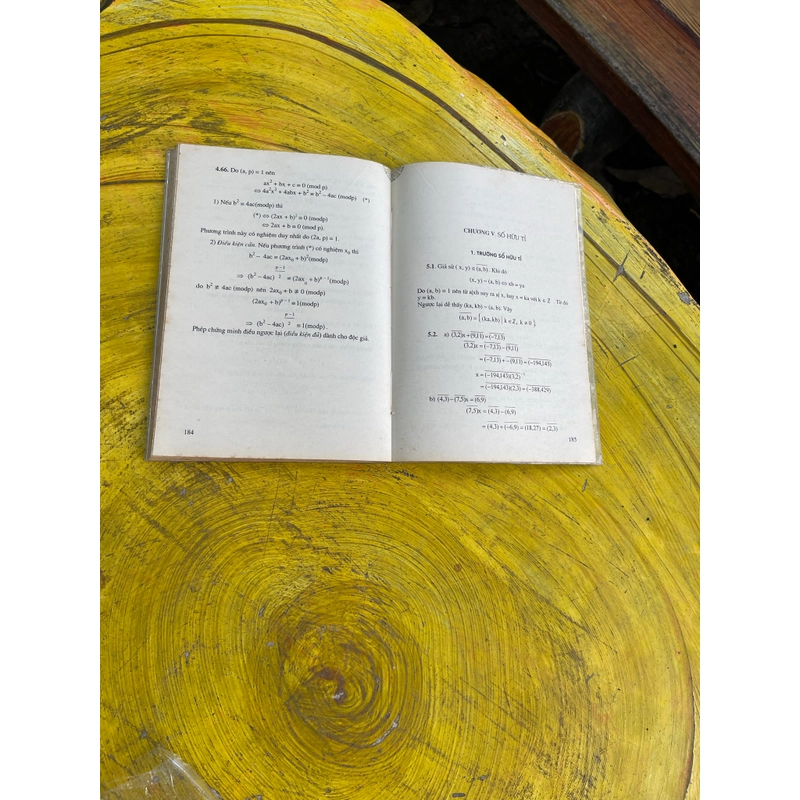 4.66. Do (a, p) = 1 nên
ax² + bx + c ≡ 0 (mod p)
⇔ 4a²x² + 4abx + b² ≡ b² – 4ac (modp) (*)
1) Nếu b² ≡ 4ac(modp) thì
(*) ⇔ (2ax + b)² ≡ 0 (modp)
⇔ 2ax + b ≡ 0 (mod p).
Phương trình này có nghiệm duy nhất do (2a, p) = 1.
2) Điều kiện cần. Nếu phương trình (*) có nghiệm x₀ thì
b² – 4ac ≡ (2ax₀ + b)²(modp)
⇒ (b² – 4ac)^((p – 1)/2) ≡ (2ax₀ + b)^(p – 1)(modp)
do b² ≢ 4ac (modp) nên 2ax₀ + b ≢ 0 (modp)
(2ax₀ + b)^(p – 1) ≡ 1(modp)
⇒ (b² – 4ac)^((p – 1)/2) ≡ 1(modp).
Phép chứng minh điều ngược lại (điều kiện đủ) dành cho độc giả.
184
CHƯƠNG V. SỐ HỮU TỈ
1. TRƯỜNG SỐ HỮU TỈ
5.1. Giả sử (x, y) ∈ (a, b). Khi đó
(x, y) ~ (a, b) ⇔ xb = ya
Do (a, b) = 1 nên từ a|xb suy ra a| x, hay x = ka với k ∈ Z. Từ đó
y = kb.
Ngược lại dễ thấy (ka, kb) ~ (a, b). Vậy
(a, b) = {(ka, kb) | k ∈ Z, k ≠ 0}.
5.2. a) (3,2)x + (9,11) = (–7,13)
(3,2)x = (–7,13) – (9,11)
= (–7,13) + –(9,11) = (–194,143)
x = (–194,143)(3,2)⁻¹
= (–194,143)(2,3) = (–388,429)
b) (4,3) – (7,5)x = (6,9)
(7,5)x = (4,3) – (6,9)
= (4,3) + (–6,9) = (18,27) = (2,3)
185